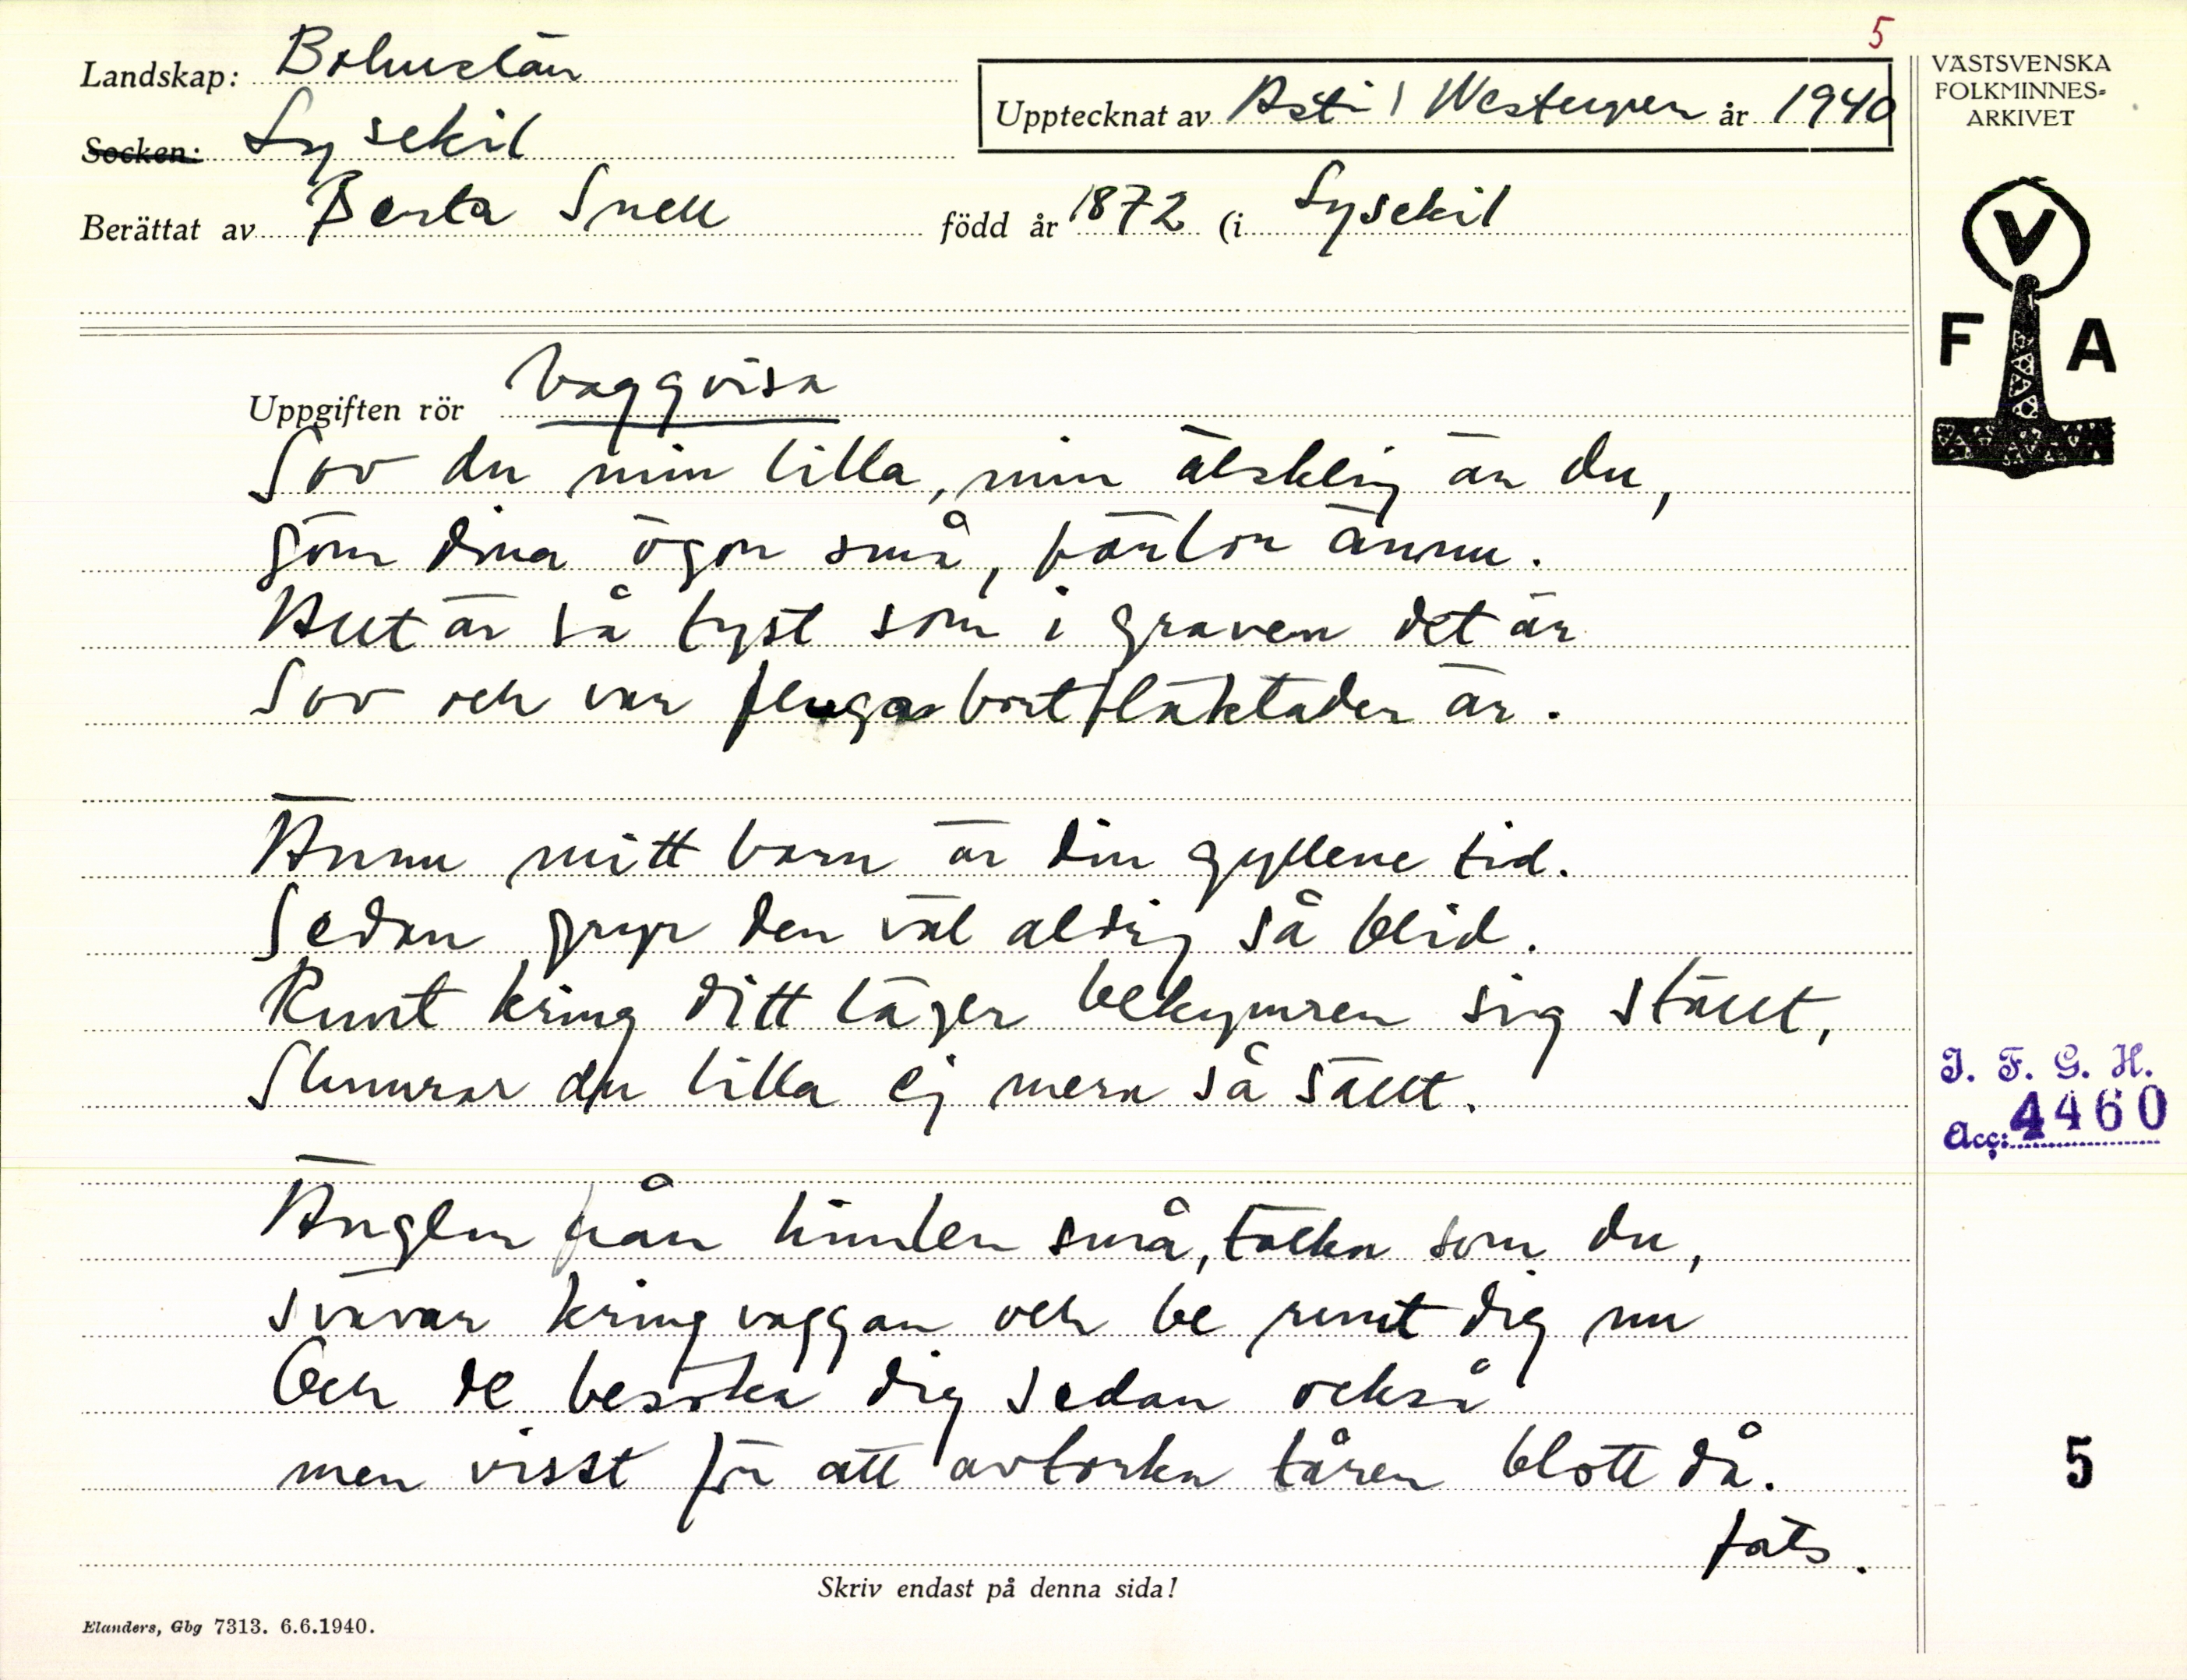 5
Landskap: Bohuslän
VÄSTSVENSKA
FOLKMINNES-
ARKIVET
Upptecknat av Astri Westergren år 1940
Socken: Lysekil
Berättat av Berta Snell född år 1872 (i Lysekil
V
F A
Uppgiften rör Vaggvisa
Sov du min lilla, min älskling är du,
göm dina ögon små, pärlor ännu.
Allt är så tyst som i graven det är
Sov och var flugas bortfläktader är.
Ännu mitt barn är din gyllene tid.
Sedan gryr den väl aldrig så blid.
Runt kring ditt läger bekymren sig ställt,
Slumrar du lilla ej mera så sällt.
I. F. G. H.
Acc: 4460
Änglar från himlen små, täcka som du,
svävar kring vaggan och be runt dig nu
Och de besöka dig sedan också
men visst för att avtorka tåren blott då.
5
forts.
Skriv endast på denna sida!
Elanders, Gbg 7313. 6.6.1940.